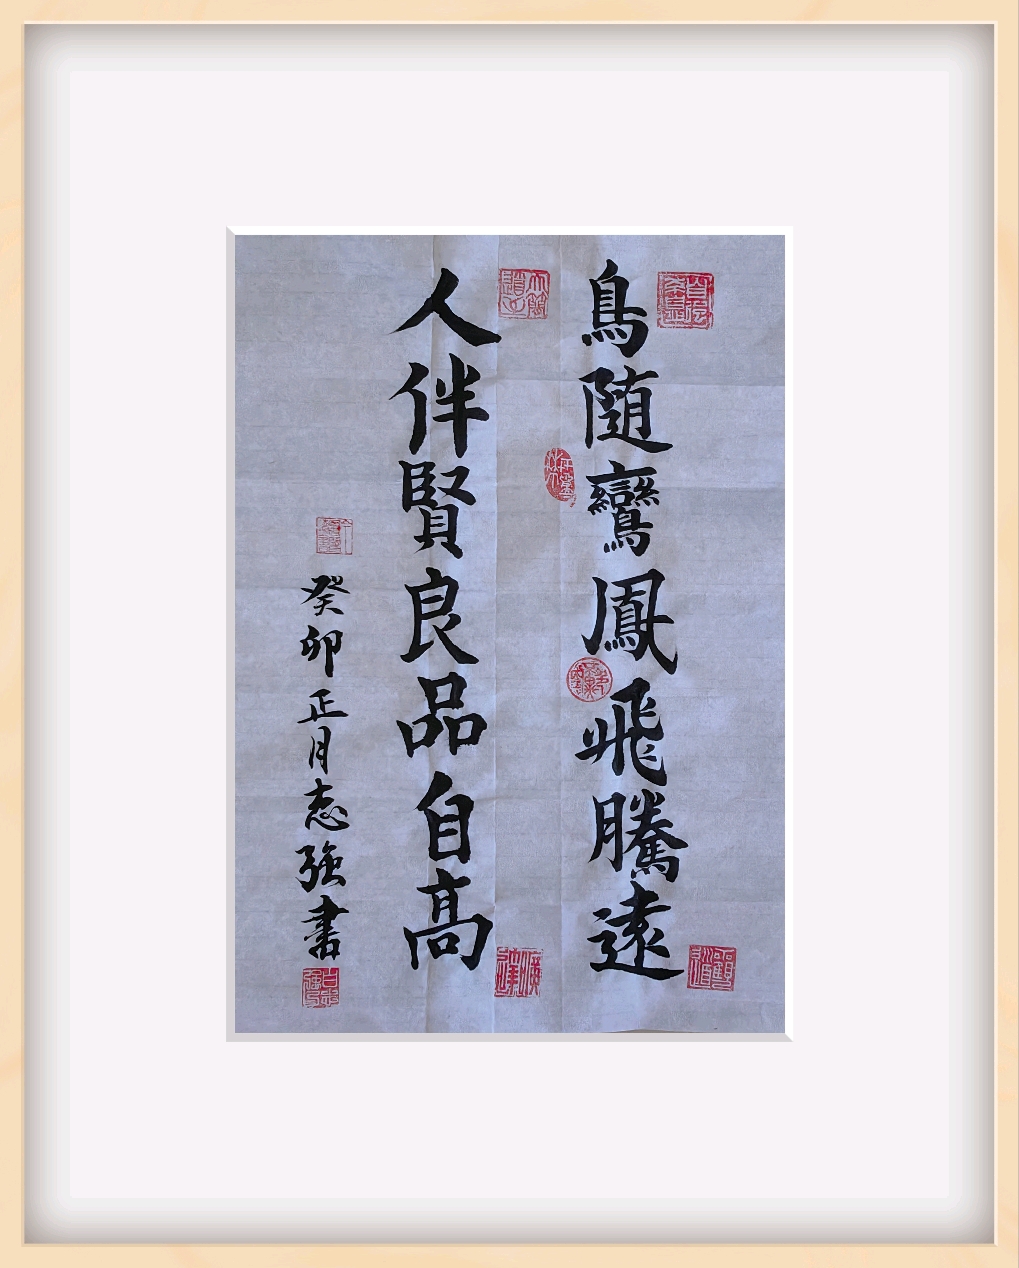 鳥随鸞鳳飛騰遠
人伴賢良品自高
癸卯正月志強書